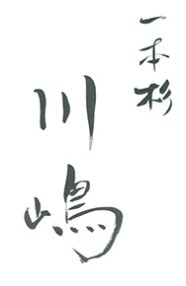 一本杉
川嶋